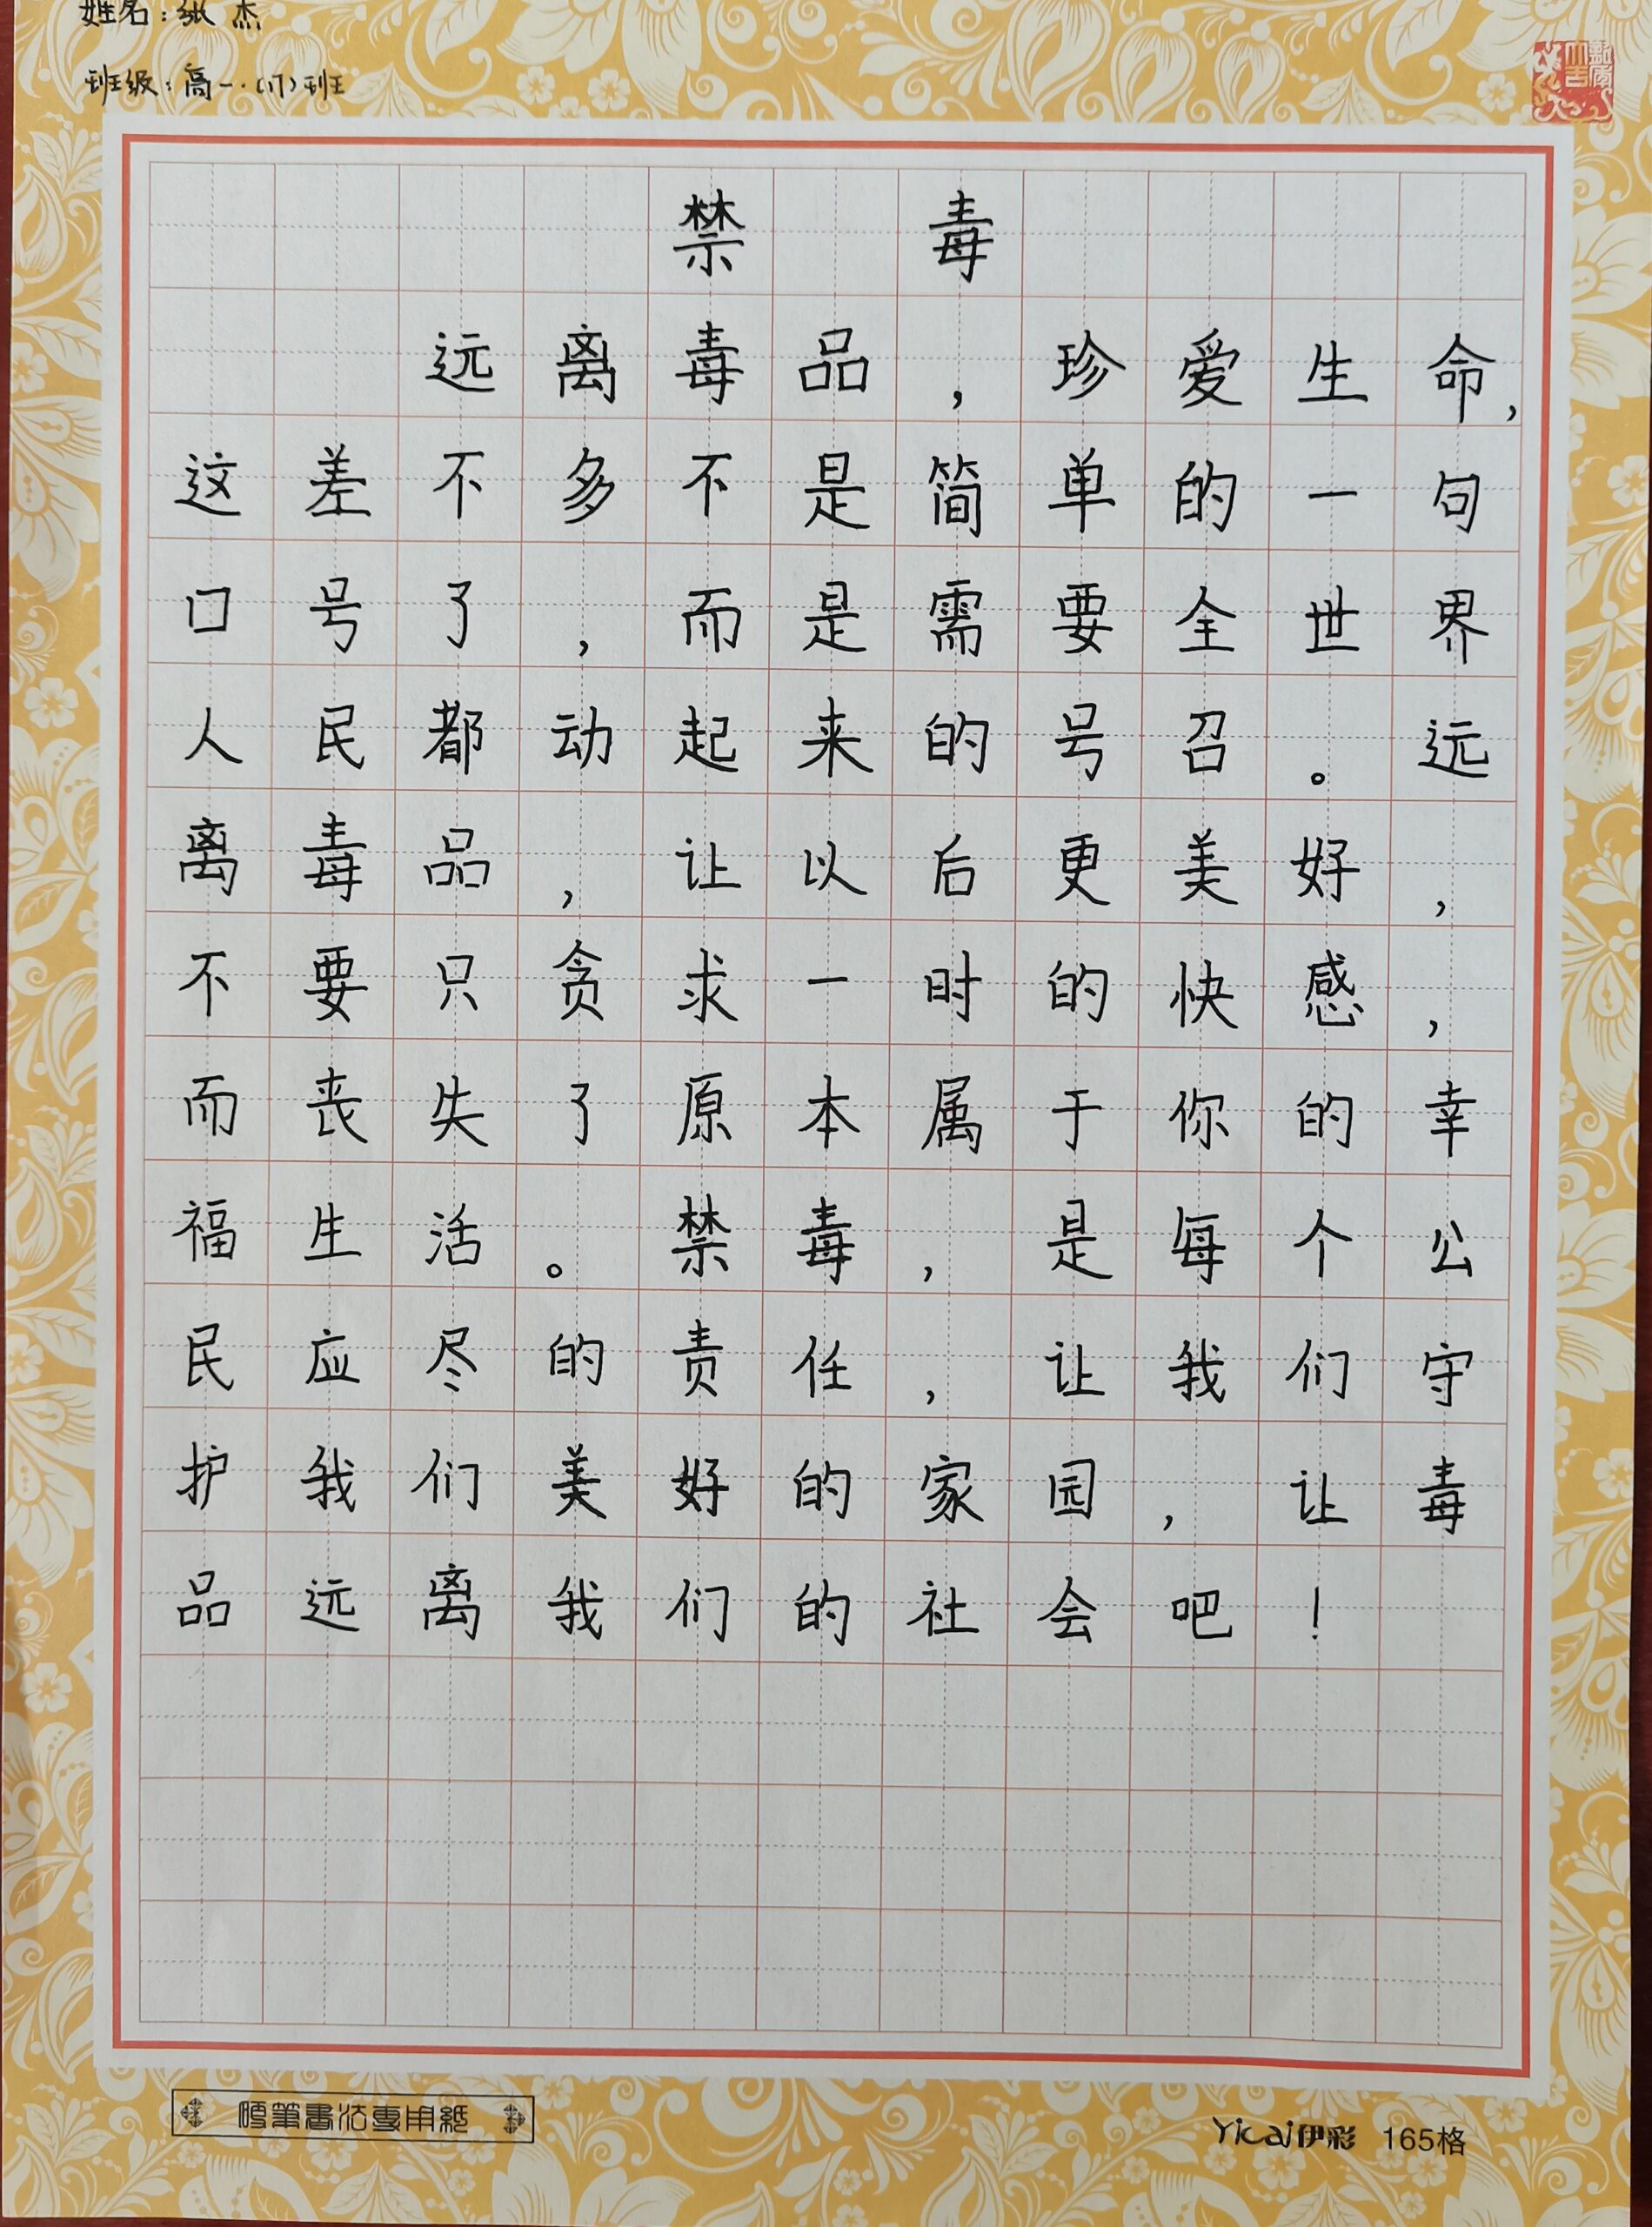 姓名：张杰
班级：高一.(17)班
禁毒
远离毒品，珍爱生命，
这差不多不是简单的一句
口号了，而是需要全世界
人民都动起来的号召。远
离毒品，让以后更美好，
不要只贪求一时的快感，
而丧失了原本属于你的幸
福生活。禁毒，是每个公
民应尽的责任，让我们守
护我们美好的家园，让毒
品远离我们的社会吧！
硬筆書法專用紙
Yicai伊彩 165格